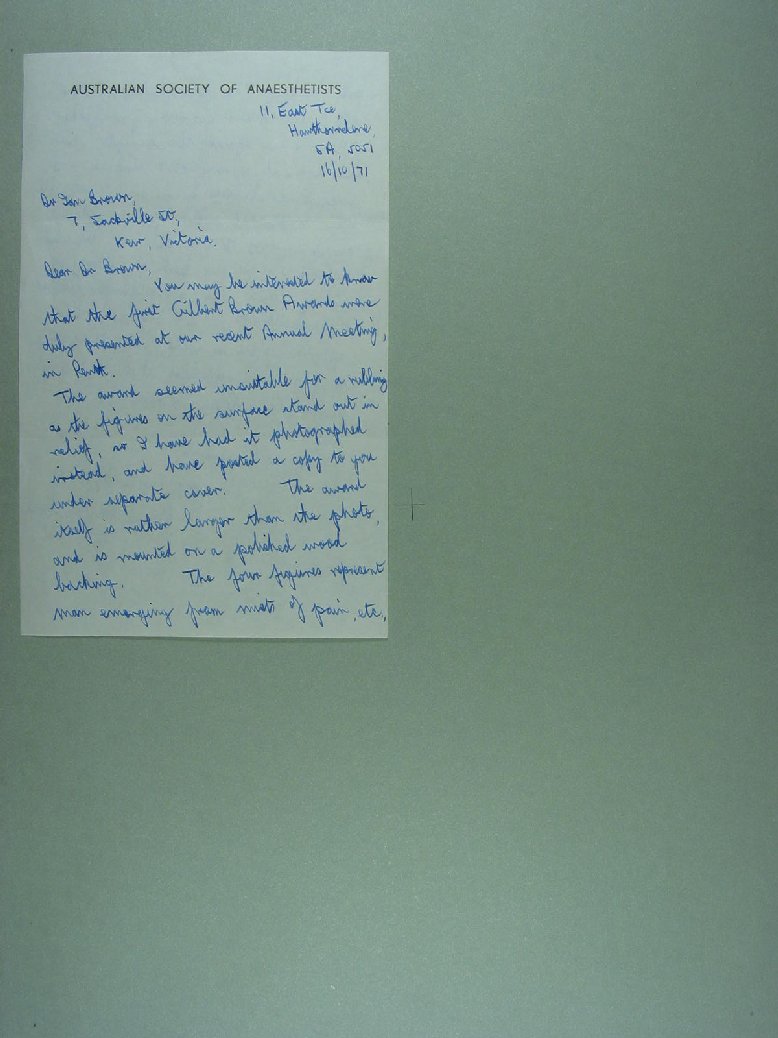 AUSTRALIAN SOCIETY OF ANAESTHETISTS
11, East Tce,
Hawthorndene,
SA, 5051
16/10/71
Dr Ian Brown,
7, Sackville St,
Kew, Victoria.
Dear Dr Brown,
You may be interested to know
that the first Gilbert Brown Awards were
duly presented at our recent Annual Meeting,
in Perth.
The award seemed unsuitable for a rubbing
as the figures on the surface stand out in
relief, so I have had it photographed
instead, and have posted a copy to you
under separate cover. The award
itself is rather larger than the photo,
and is mounted on a polished wood
backing. The four figures represent
man emerging from mists of pain, etc,